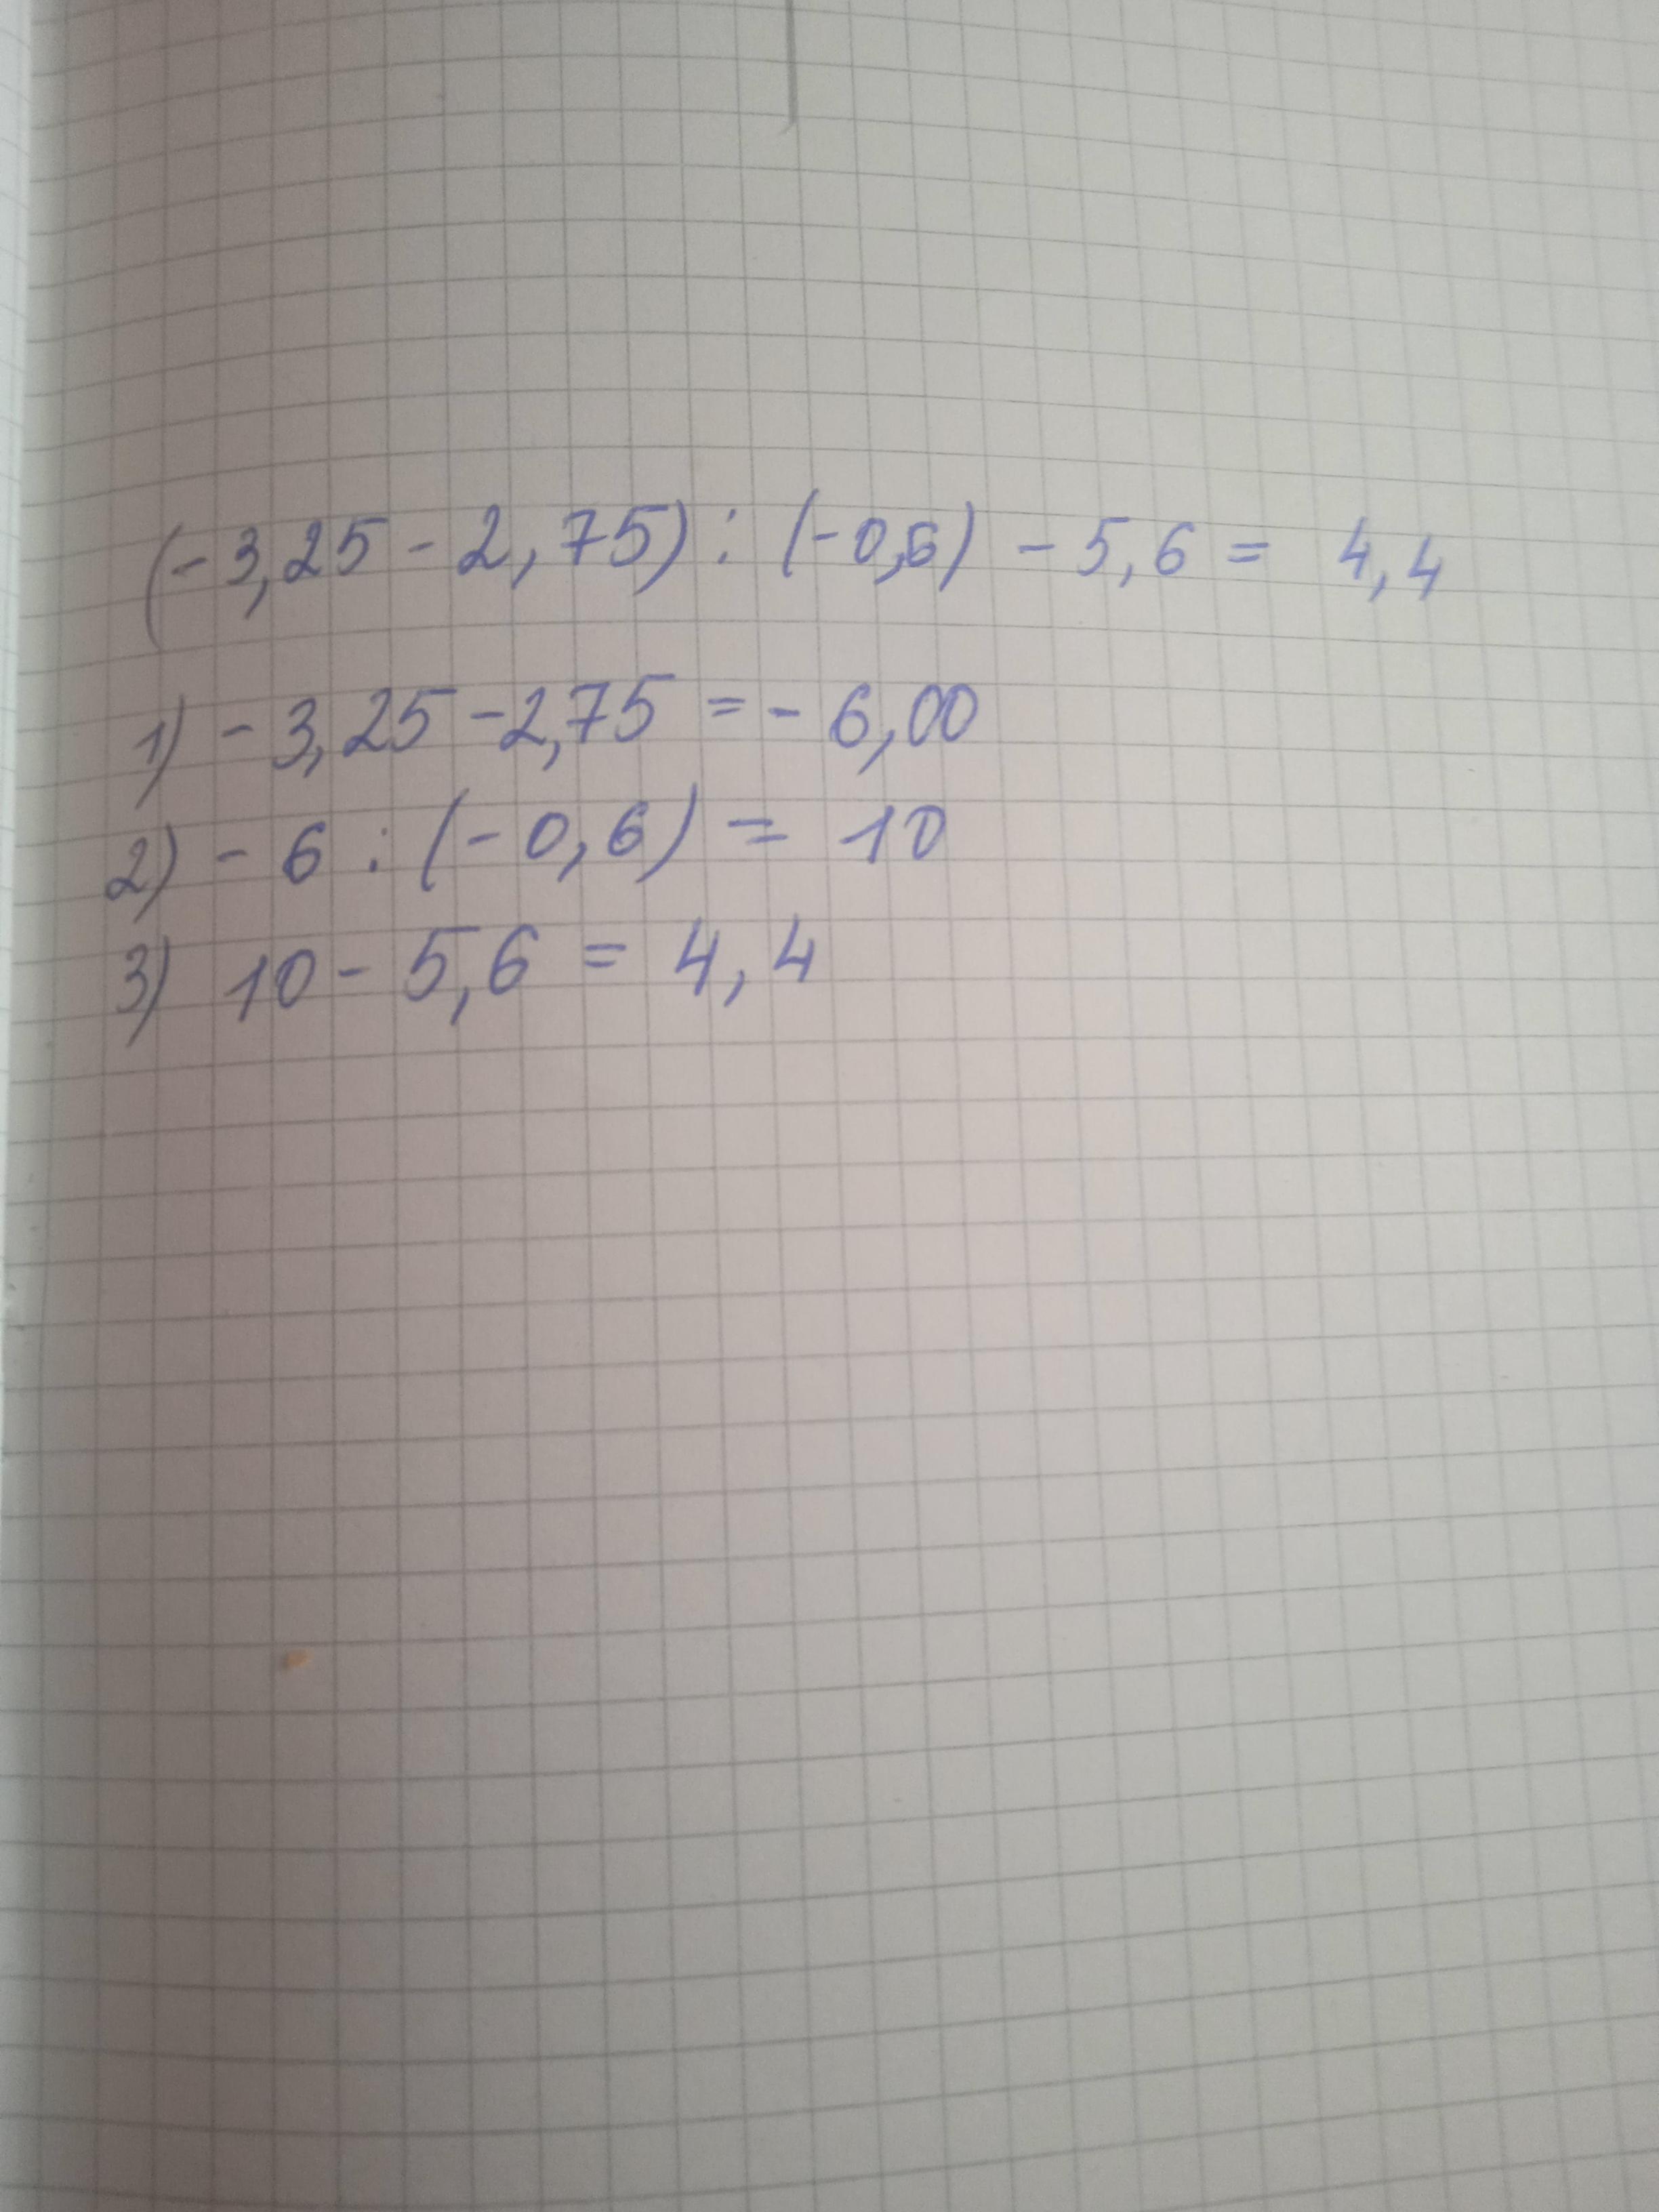 (-3,25-2,75):(-0,6)-5,6= 4,4
1) -3,25-2,75=-6,00
2) -6:(-0,6)= 10
3) 10-5,6=4,4